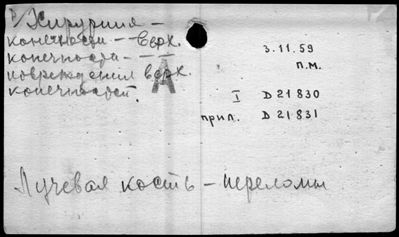 Хирургия –
конечности – Верх.
конечности –
повреждения верх.
конечностей.
А
3.11.59
п.м.
I D 21 830
прил. D 21 831
Лучевая кость – переломы